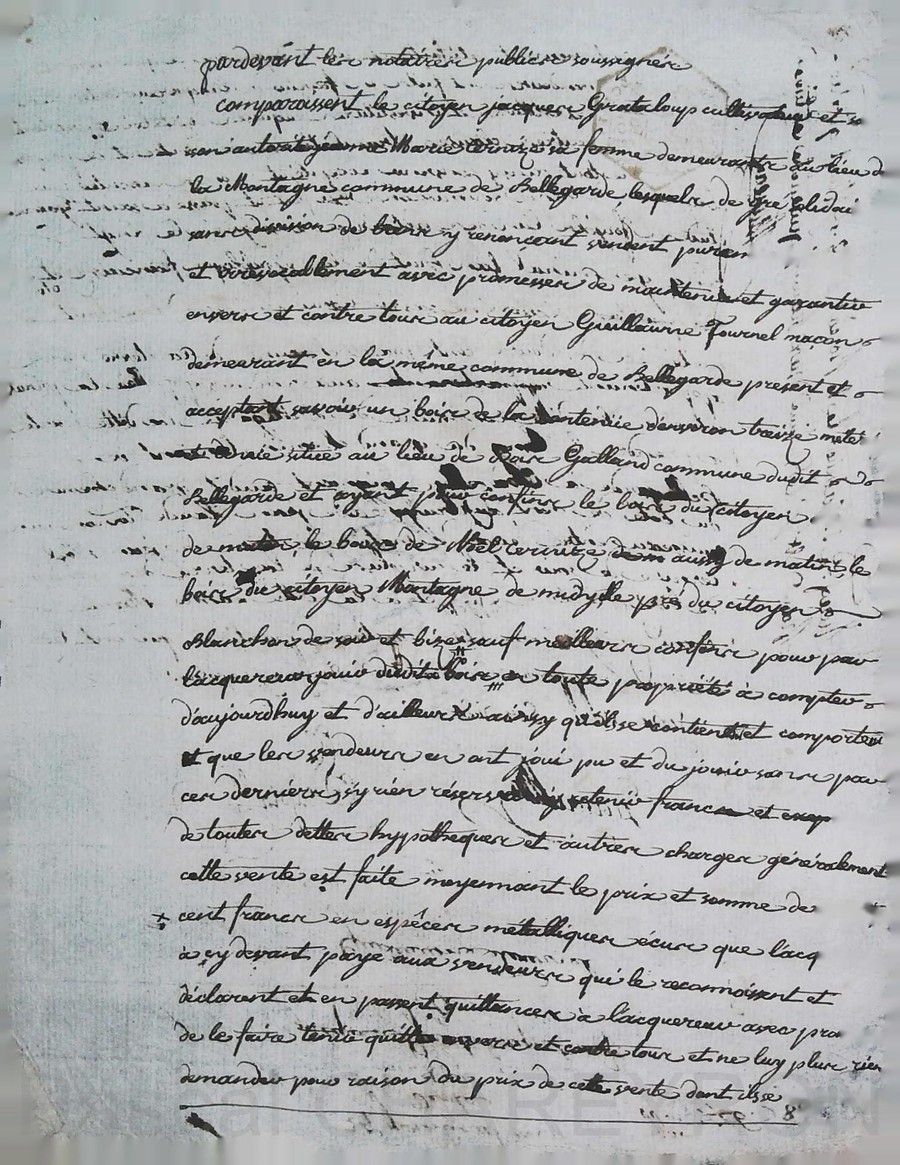 pardevant les notaires publics soussignés
comparaissent le citoyen jacques Grataloup cultivateur et
son autorité jeanne Marie cernize sa femme demeurants au lieu d
la Montagne commune de Bellegarde lesquels de gré solidai
sans division de biens y renoncant vendent puren
et irrevocablement avec promesses de maintenir et garantir
envers et contre tous au citoyen Guillaume Fournel macon
demeurant en la même commune de Bellegarde present et
acceptant savoir un bois de la contenüe denviron treize mete
situé au lieu de Bois Galland commune dudit
Bellegarde et ayant pour confins le bois du citoyen
de matin le bois de Noël cernize aussy de matin le
bois du citoyen Montagne de midy le pré du citoyen
Blanchon de soir et bize sauf meilleurs confins pour par
lacquereur jouir dudit bois en toute propriété à compter
d'aujourdhuy et d'ailleurs ainsy qu'ilsse contient et comportent
et que les vendeurs en ont joui pu et du jouir sans par
ces derniers sy rien réserver ny retenir francs et exep
de toutes dettes hypotheques et autres charges généralement
cette vente est faite moyennant le prix et somme de
cent francs en espêces métalliques écus que lacq
a cy devant payé aux vendeurs qui le reconnoissent et
déclarent et en passent quittances a l'acquereur avec pro
de le faire tenir quitte envers et contre tous et ne luy plus rien
demander pour raison du prix de cette vente dont ilsse